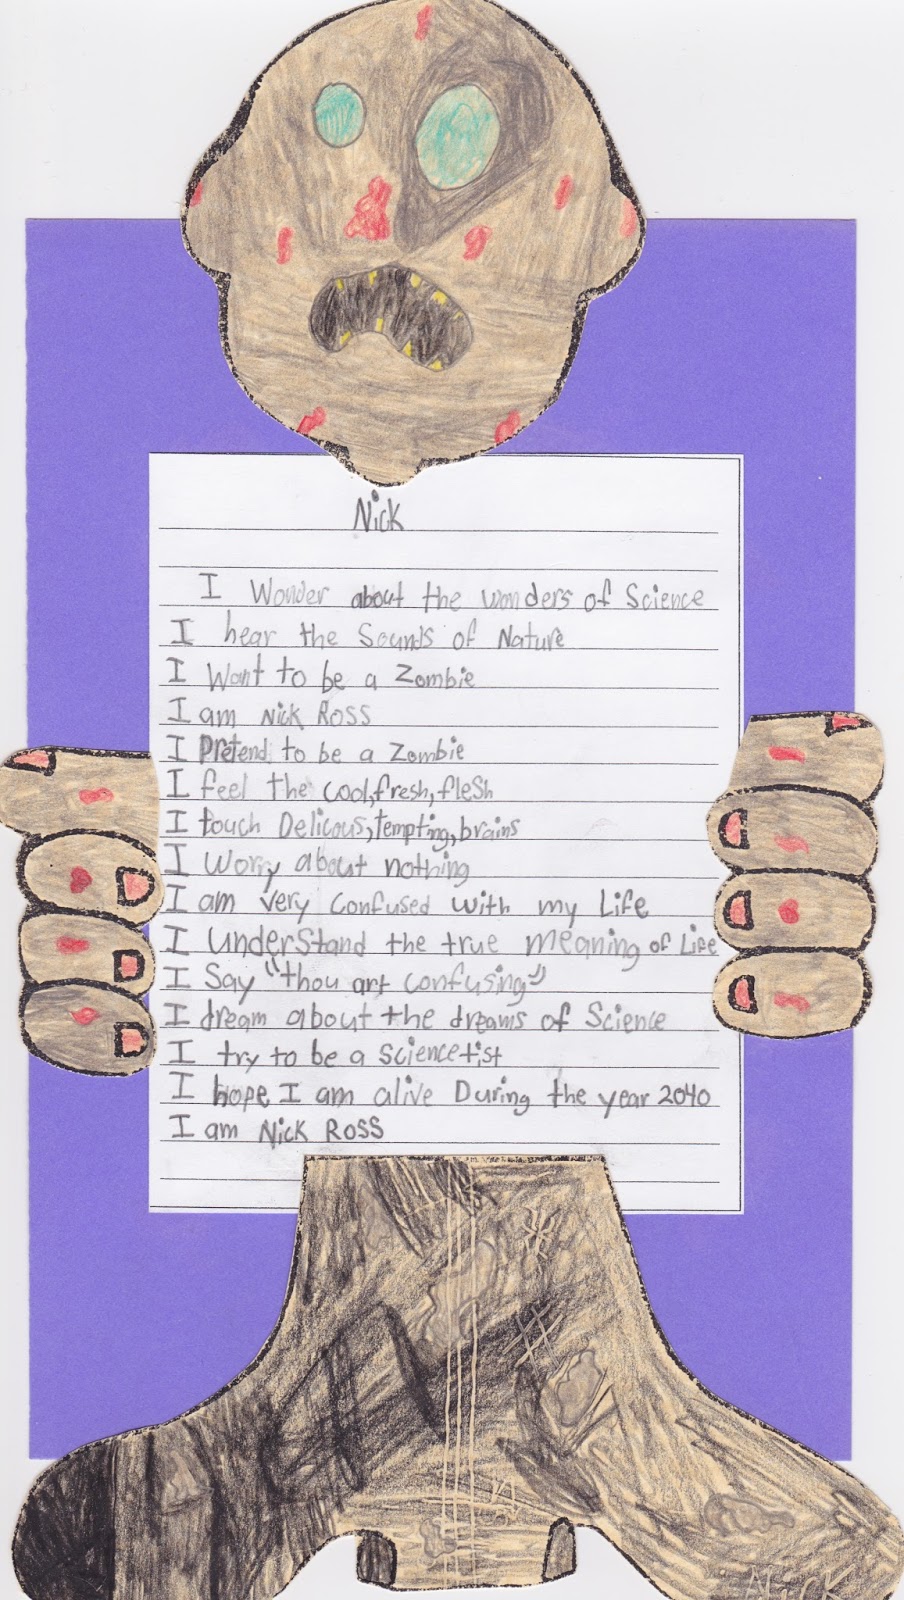 Nick
I Wonder about the wonders of Science
I hear the Sounds of Nature
I Want to be a Zombie
I am Nick Ross
I Pretend to be a Zombie
I feel the cool,fresh,flesh
I touch Delicous,tempting,brains
I Worry about nothing
I am very confused with my Life
I understand the true meaning of Life
I Say "thou art confusing"
I dream about the dreams of Science
I try to be a sciencetist
I hope I am alive During the year 2040
I am Nick Ross
Nick